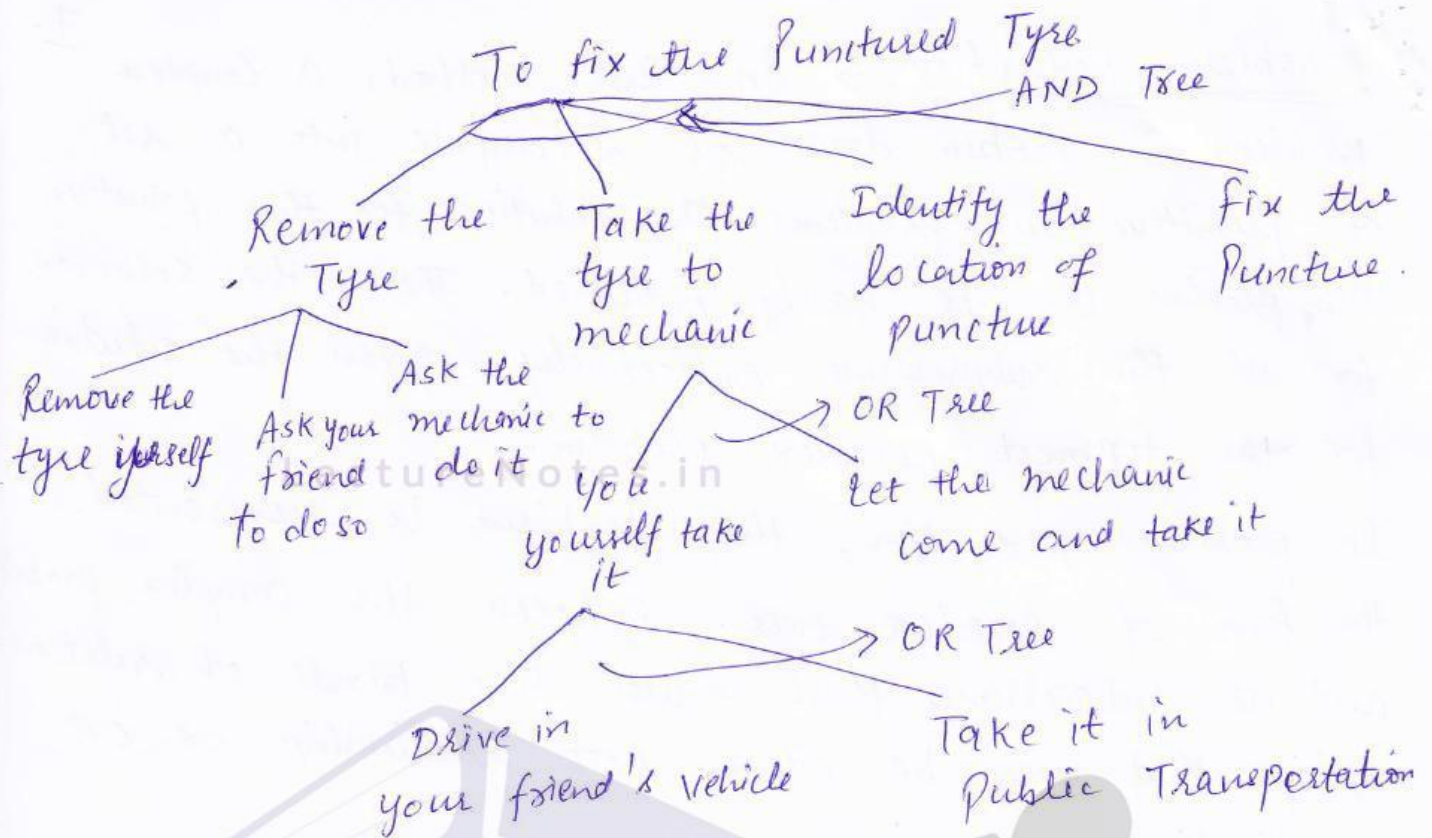 To fix the Punctured Tyre
AND Tree
Remove the
Tyre
Take the
tyre to
mechanic
Identify the
location of
puncture
fix the
Puncture.
Remove the
tyre yourself
Ask your
friend
to do so
Ask the
mechanic to
do it
OR Tree
you
yourself take
it
Let the mechanic
come and take it
OR Tree
Drive in
your friend's vehicle
Take it in
Public Transportation
LectureNotes.in